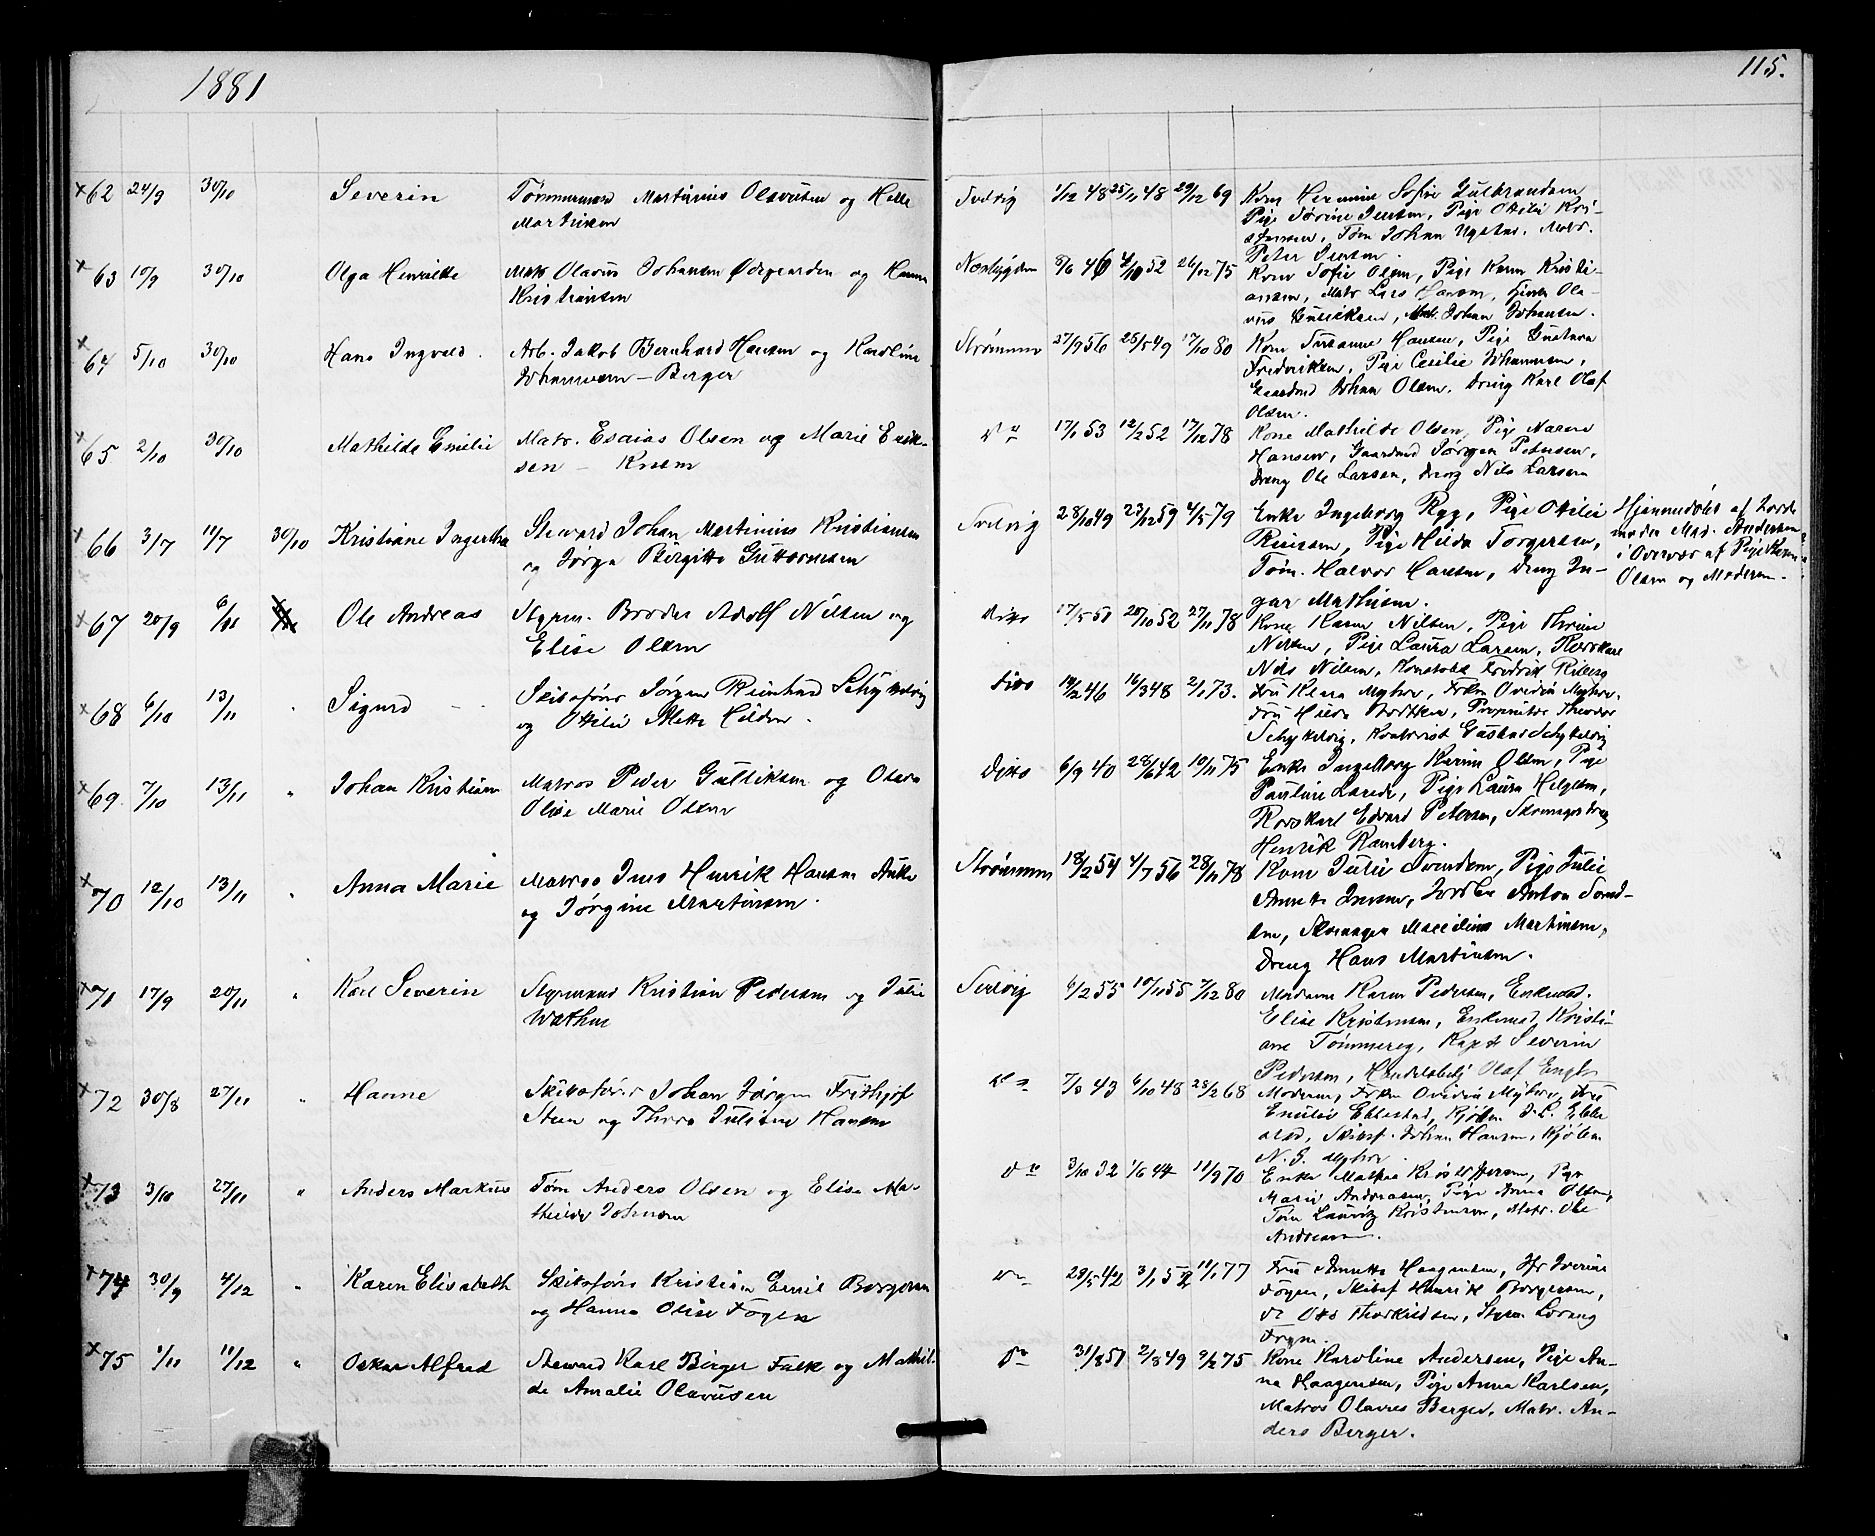 1881
115.
62 24/9 30/10 Severin Tømmermand Martinius Olavesen og Helle
Martinsen
Svelvig 1/12 48 25/11 48 29/12 69 Kone Hermine Sofie Gulbrandsen
Pige Sørine Jensen, Pige Otilie Kri-
stensen, Tøm Johan, Matr.
Peter Jensen.
63 10/9 30/10 Olga Henrikke Matr Olavus Johansen Ødegaarden og Hanna
Kristiansen
Nesbygden 8/6 46 4/10 52 26/12 75 Kone Sofie Olsen, Pige Karen Kristi-
ansen, Matr Lars Hansen, Ola-
vus Gulliksen, Matr. Johan Johansen.
64 5/10 30/10 Hans Ingvald. Arb. Jakob Bernhard Hansen og Karoline
Johannesen – Berger
Strømmen 27/9 56 25/5 49 17/10 80 Kone Susanne Hansen, Pige Gustava
Fredriksen, Pige Cecilie Johannesen,
Gaardmd Johan Olsen, Dreng Karl Olaf
Olsen.
65 2/10 30/10 Mathilde Emilie Matr. Esaias Olsen og Marie Erik-
sen – Knem
Do 17/1 53 12/2 52 17/12 78 Kone Mathilde Olsen, Pige Maren
Hansen, Gaardmd Jørgen Petersen,
Dreng Ole Larsen, Dreng Nils Larsen
66 3/7 11/7 30/10 Kristiane Ingertha Steward Johan Martinius Kristiansen
og Jørga Birgitte Guttormsen
Svelvig 28/10 49 23/12 59 4/5 79 Enke Ingeborg Ryg, Pige Otilie
Pige Hilda Torgersen,
Tøm. Halvor Hansen, Dreng In-
gar Mathisen.
Hjemmedøbt af Jorde-
moder Mad. Andersen
i Overvær af Pige Karen
Olsen og Moderen.
67 20/9 6/11 Ole Andreas Styrm. Broder Adolf Nilsen og
Elise Olsen
Ditto 17/5 51 20/10 52 27/11 78 Kone Karen Nilsen, Pige Thrine
Nilsen, Pige Laura Larsen, Rorskarl
Nils Nilsen, Konstabl Fredrik Riberg
68 6/10 13/11 „ Sigurd Skibsfører Jørgen Reinhard Schykelvig
og Otilie Alette Hilden.
Ditto 14/2 46 16/3 48 2/1 73. Fru Klara Myhre, Frøken Ovidia Myhre,
Fru Hilda, Proprietær Theodor
Schykelvig, Kontorist Gustav Schykelvig
69. 7/10 13/11 „ Johan Kristian Matros Peder Gulliksen og Olava
Olise Marie Olsen
Ditto 6/9 40 28/6 42 10/11 75 Enke Ingeborg Karine Olsen, Pige
Pauline Larsen, Pige Laura Helgesen,
Rorskarl Edvard Petersen, Skomagerdreng
Henrik Ramberg.
70 12/10 13/11 „ Anna Marie Matros Jens Henrik Hansen Anke
og Jørgine Martinsen.
Strømmen 18/2 54 4/7 56 28/11 78 Kone Julie Svendsen, Pige Julie
Annette Jensen, Anton Svend-
sen, Skomager Martinsen,
Dreng Hans Martinsen.
71 17/9 20/11 „ Karl Severin Styrmand Kristian Pedersen og Julie
Wathne
Svelvig 6/2 55 10/11 55 7/12 80 Madame Karen Pedersen, Enkemad.
Elise Kristensen, Enkemad, Kristi-
ane Tømmereg, Kapt Severin
Pedersen, Handelsbetj Olaf Engh
72 30/8 27/11 „ Hanne Skibsfører Johan Jørgen Frithjof
Steen og Thora Juliane Hansen
Do 7/3 43 6/10 48 28/2 68 Moderen, Frøken Ovidia Myhre, Fru
Emilie Ebbestad, Kjøbm. J. L. Ebbe
stad, Skibsf. Johan Hansen, Kjøbm
N. G. Myhre.
73 3/10 27/11 „ Anders Markus Tøm Anders Olsen og Elise Ma-
thilde Johnsen
Do 3/10 32 1/6 44 11/9 70 Enke Mathea Kristoffersen, Pige
Marie Andreasen, Pige Anna Olsen,
Tøm Lauritz Kristensen, Matr. Ole
Andreasen.
74 30/9 4/12 „ Karen Elisabeth Skibsfører Kristian Emil Borgersen
og Hanna Olise Fogen
Do 29/5 42 3/1 52 11/1 77 Fru Annette Haagensen, Jfr Iverine
Fogen, Skibsf Henrik Borgersen,
Do Otto Thorkildsen, Styrm Lorang
Fogen.
75 1/11 11/12 „ Oskar Alfred Steward Karl Birger Falk og Mathil-
de Amalie Olavesen
Do 31/8 51 2/8 49 9/2 75 Kone Karoline Andersen, Pige An-
na Haagensen, Pige Anna Karlsen,
Matros Olaves Berger, Matr. An-
ders Berger.